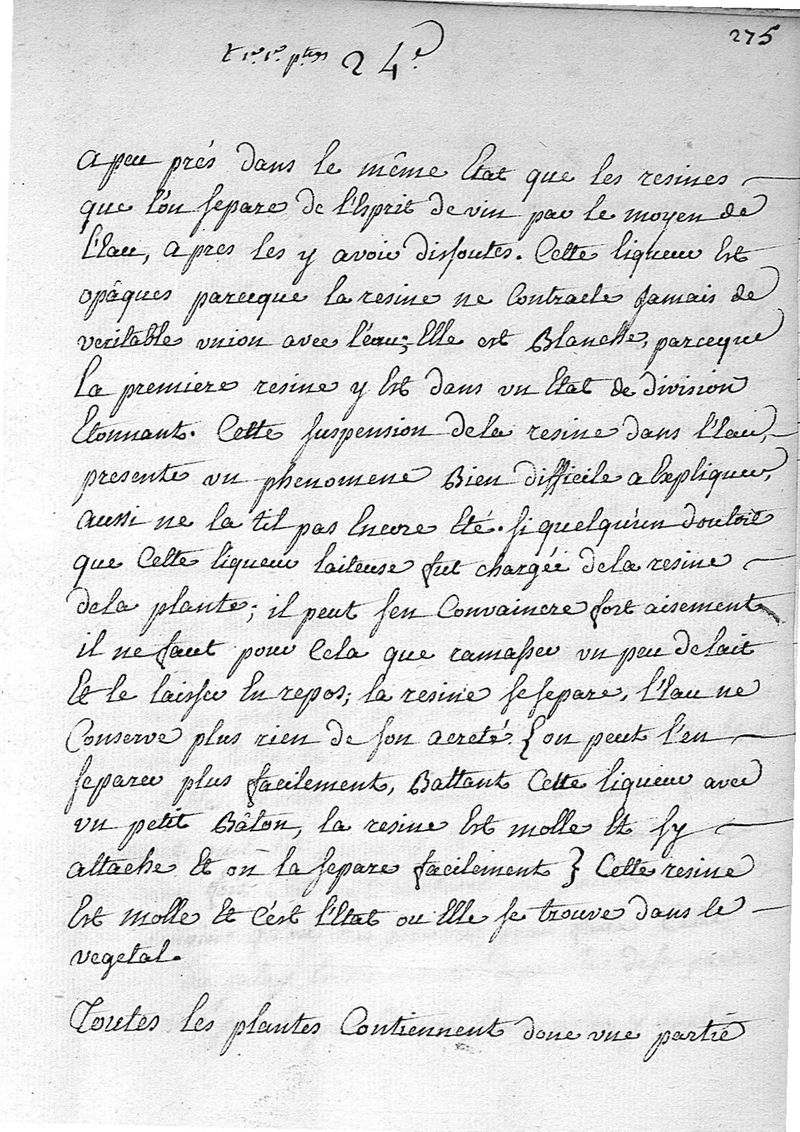 275
24e.
a peu prés dans le même Etat que les resines
que l'on separe de l'Esprit de vin par le moyen de
l'Eau, apres les y avoir dissoutes. Cette liqueur Est
opâques parceque la resine ne Contracte Jamais de
veritable vnion avec l'éau; Elle est Blanche, parceque
la premiere resine y Est dans vn Etat de division
Etonnant. Cette suspension dela resine dans l'Eau,
presente vn phenomene Bien difficile a Expliquer,
aussi ne la til pas Encore Eté. si quelqu'un doutoit
que Cette liqueur laiteuse fut chargée dela resine
dela plante; il peut sen Convaincre fort aisement
il ne faut pour Cela que ramasser vn peu de lait
Et le laisser En repos; la resine se separe, l'Eau ne
Conserve plus rien de son acreté. { on peut l'en
separer plus facilement, Battant Cette liqueur avec
vn petit Bâton, la resine Est molle Et sy
attache Et on la separe facilement } Cette resine
Est molle Et C'est l'Etat ou Elle se trouve dans le
vegetal.
Toutes les plantes Contiennent donc vne partie